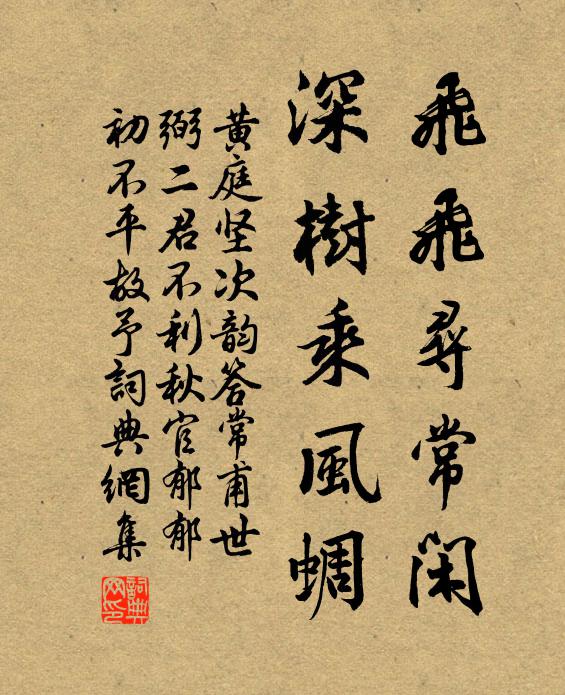 飛飛尋常閑
深樹乘風蜩
黄庭坚次韵答常甫世
弼二君不利秋官郁郁
初不平故予詞典網集
詞典网印